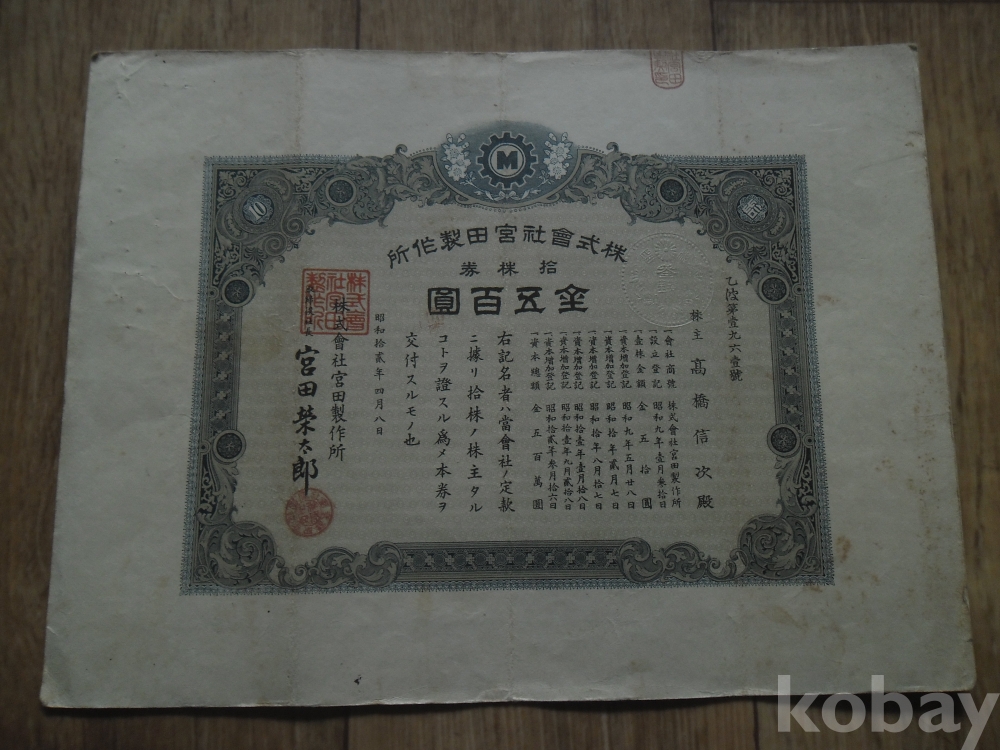 M
10
株式會社宮田製作所
拾株券
金五百圓
乙
第壹九六壹號
株主 髙橋信次殿
一會社商號 株式會社宮田製作所
一設立登記 昭和九年壹月參拾日
一壹株金額 金五拾圓
一資本增加登記 昭和九年五月廿八日
一資本增加登記 昭和拾年貳月七日
一資本增加登記 昭和拾年八月拾七日
一資本增加登記 昭和拾壹年壹月拾八日
一資本增加登記 昭和拾壹年九月貳拾八日
一資本增加登記 昭和拾貳年參月拾六日
一資本總額 金五百萬圓
右記名者ハ當會社ノ定款
ニ據リ拾株ノ株主タル
コトヲ證スル爲メ本券ヲ
交付スルモノ也
昭和拾貳年四月八日
株式會社宮田製作所
宮田榮太郎
株式會社宮田製作所
kobay